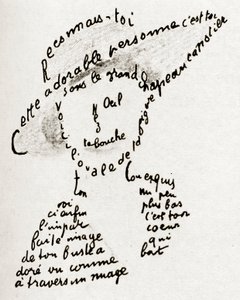 Reconnais-toi
Cette adorable personne c'est toi
Sous le grand chapeau canotier
Oeil
Nez
La bouche
Voici l'ovale de ta figure
Ton cou exquis
Voi
ci enfin
l'impar
faite image
de ton buste a
doré vu comme
à travers un nuage
un peu
plus bas
c'est ton
coeur
qui
bat